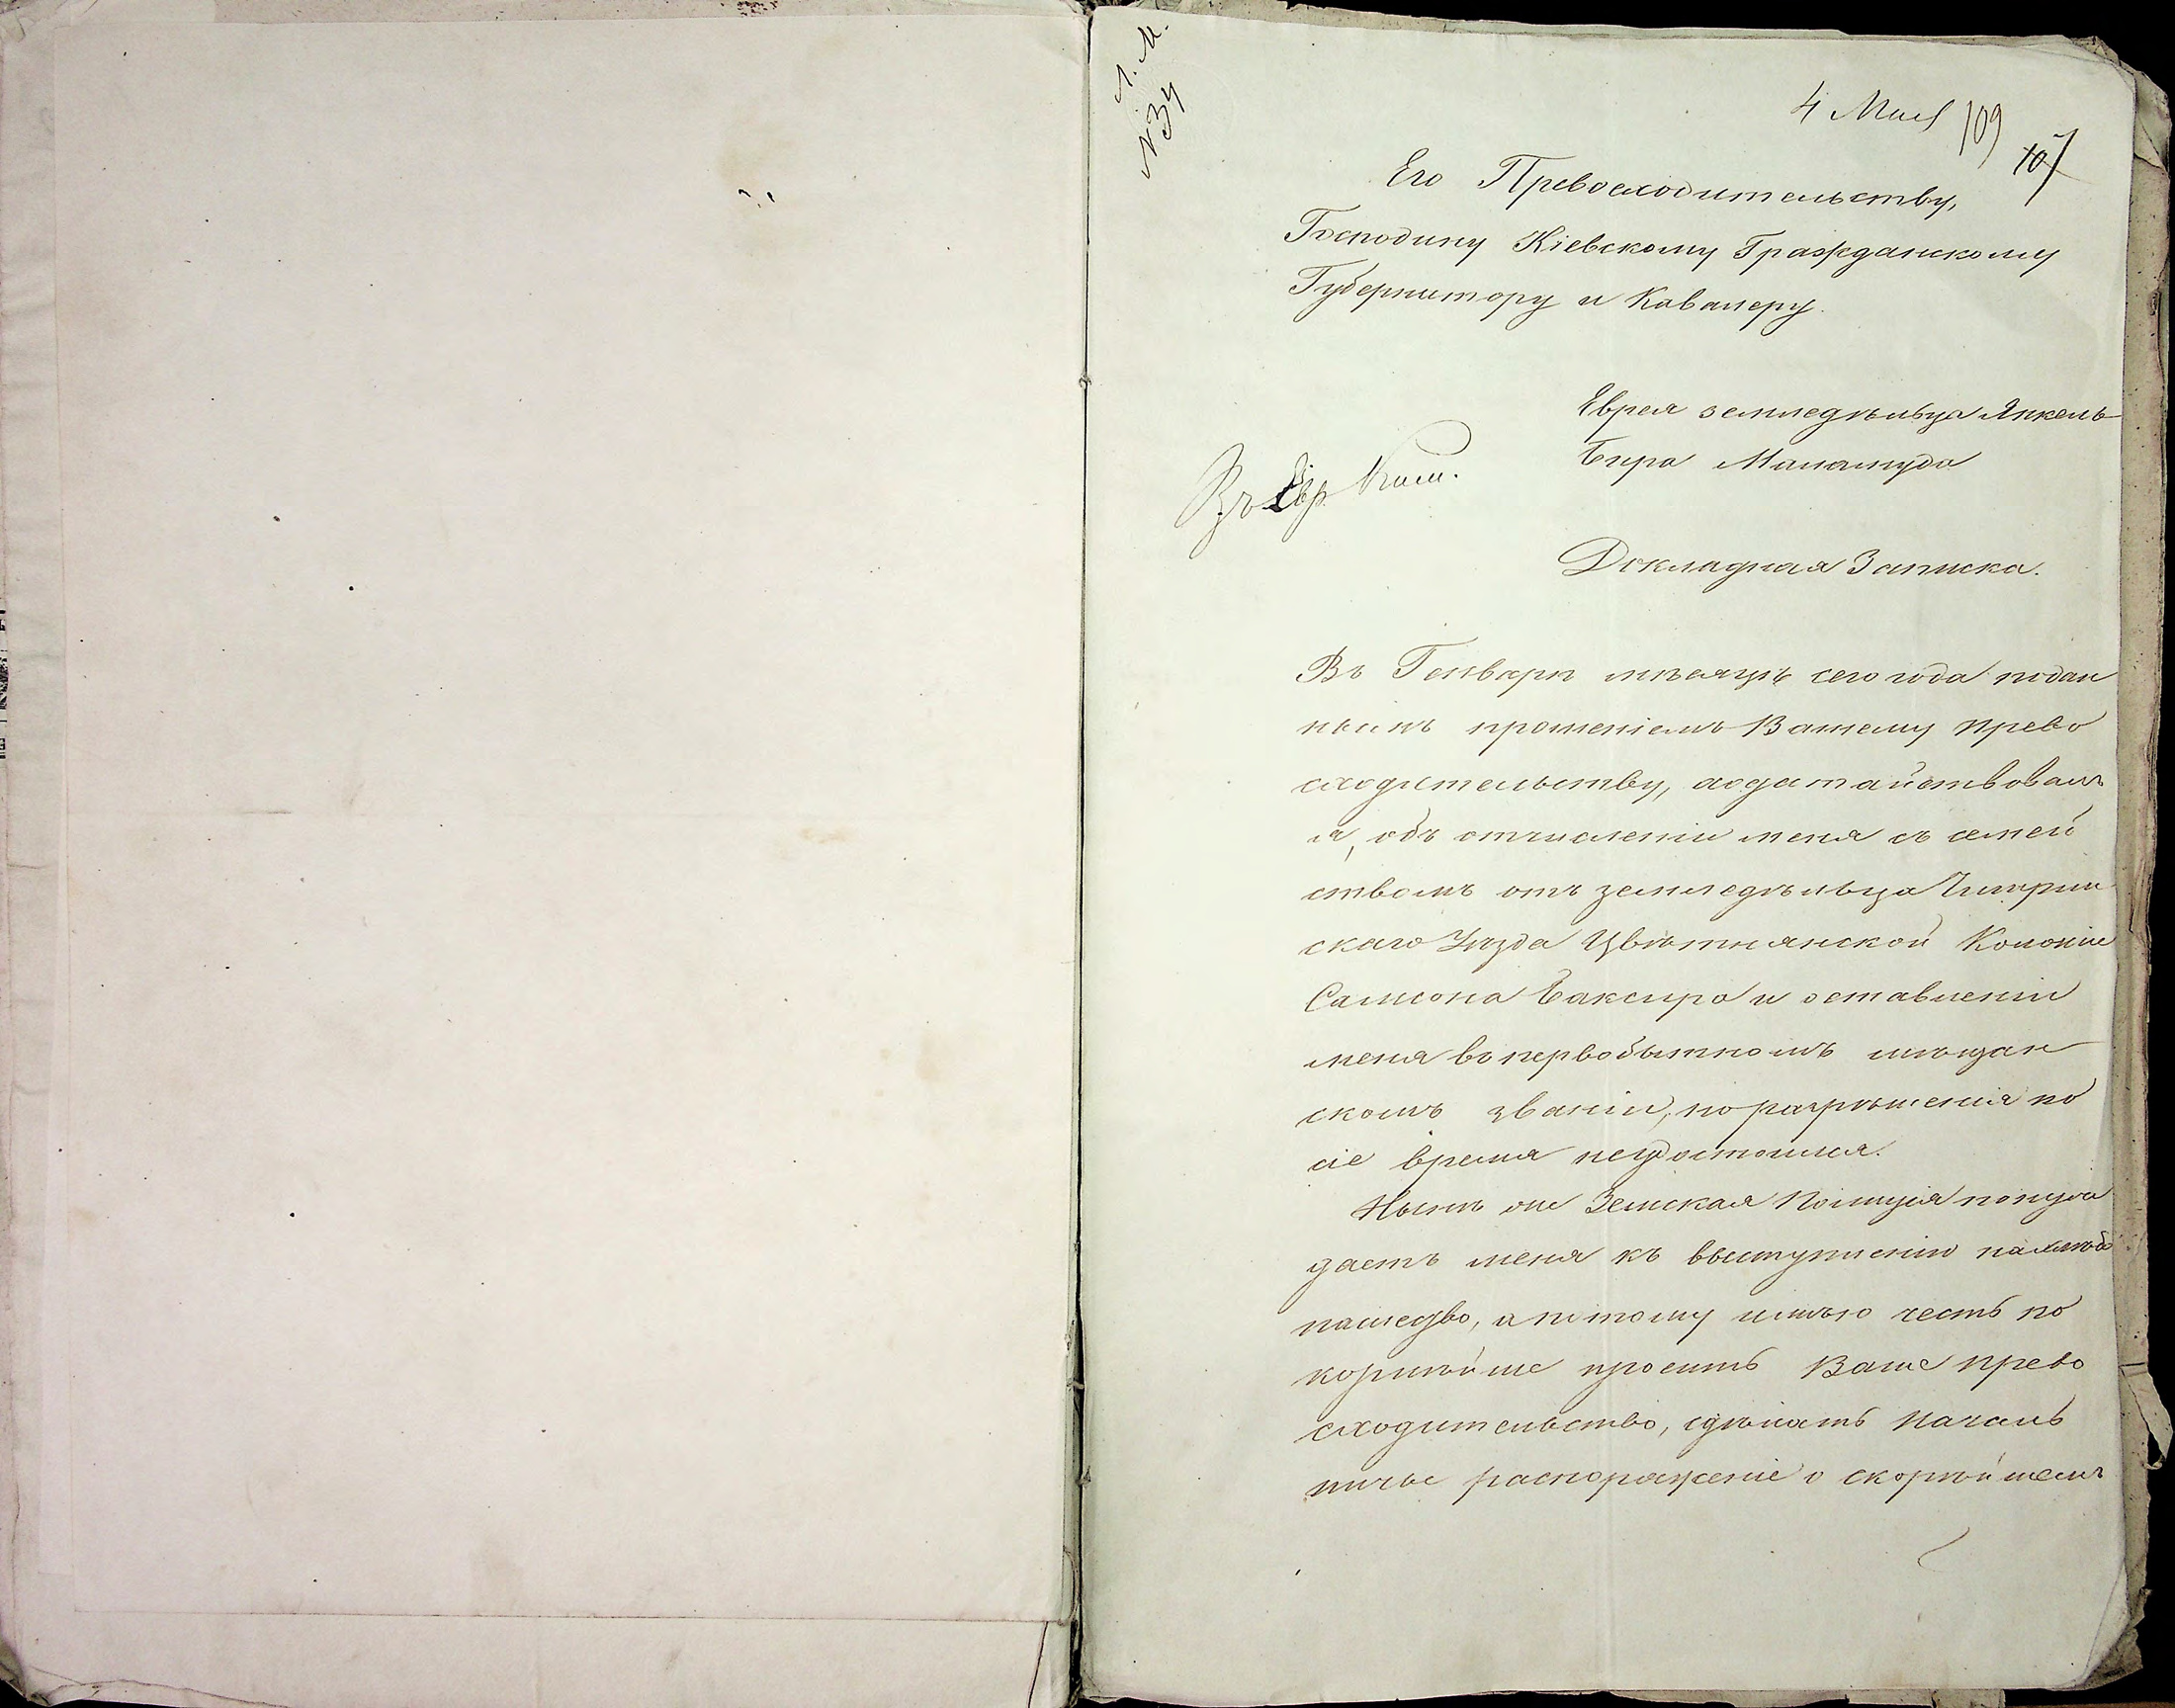 Л. М.
№ 34
4 Мая
109
107
Его Превосходительству,
Господину Кіевскому Гражданскому
Губернатору и Кавалеру.
Еврея земледѣльца Янкель
Бера Маламуда
Въ Евр. Кош.
Докладная Записка.
Въ Генварѣ мѣсяцѣ сего года подан
нымъ прошеніемъ Вашему Прево
сходительству, ходатайствовалъ
я, объ отчисленіи меня съ семей
ствомъ отъ земледѣльца Чигрин
скаго Уѣзда Цвѣтнянской Колоніи
Самсона и оставленіи
меня въ первобытномъ мѣщан
скомъ званіи, но разрѣшенія по
сіе время неудостоился.
Нынѣ же Земская Полиція понуж
даетъ меня къ выступленію на хлѣбо
пашедво, а потому имѣю честь по
корнѣйше просить Ваше Прево
сходительство, сдѣлать Началь
ничье распоряженіе о скорѣйшемъ